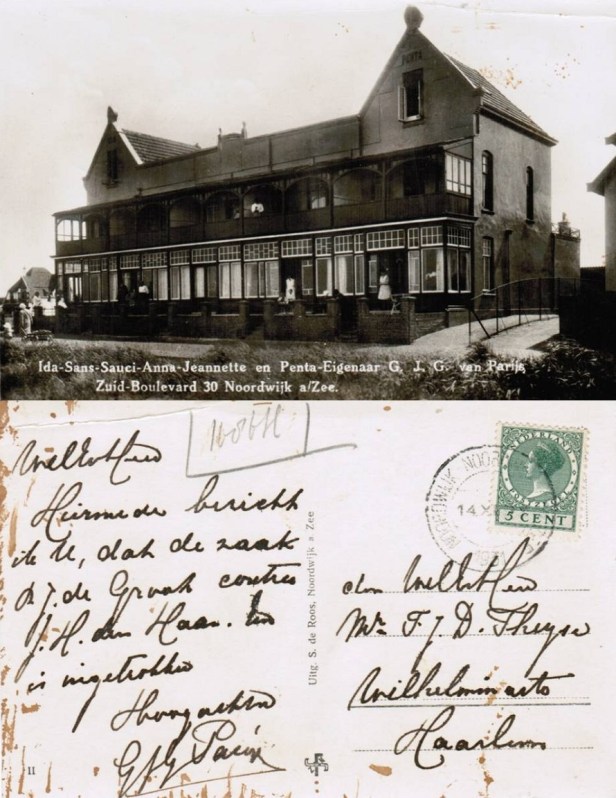 PENTA
Ida-Sans-Sauci-Anna-Jeannette en Penta-Eigenaar G. J. G. van Parijs
Zuid-Boulevard 30 Noordwijk a/Zee.
WelEdHeer
Hiermede bericht
ik U, dat de zaak
de Groot contra
J. H. den Haan
is ingetrokken
Hoogachten
GJG Parijs
II
Uitg. S. de Roos, Noordwijk a. Zee
NOORDWIJK
14 X
NEDERLAND
5 CENT
den WelEdHeer
Mr F J D. Theyse
Wilhelmina
Haarlem